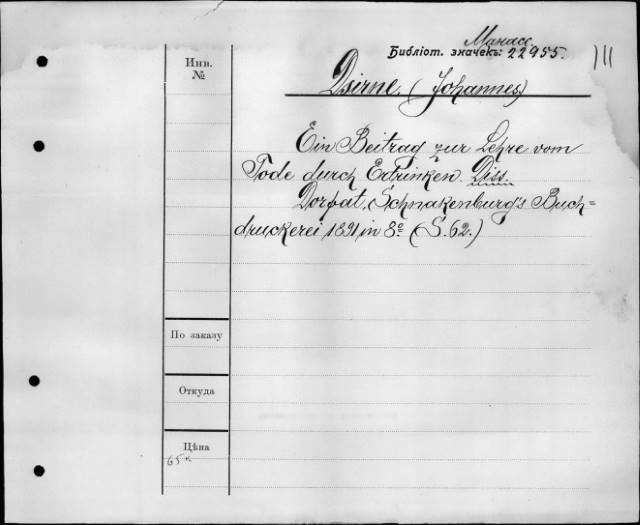 Манасс.
Библіот. значекъ: 22955.
Инв.
№
Dsirne. (Johannes)
Ein Beitrag zur Lehre vom
Tode durch Ertrinken. Diss.
Dorpat, Schnakenburg's Buch=
druckerei 1891 in 8º (S. 62.)
По заказу
Откуда
Цѣна
65к